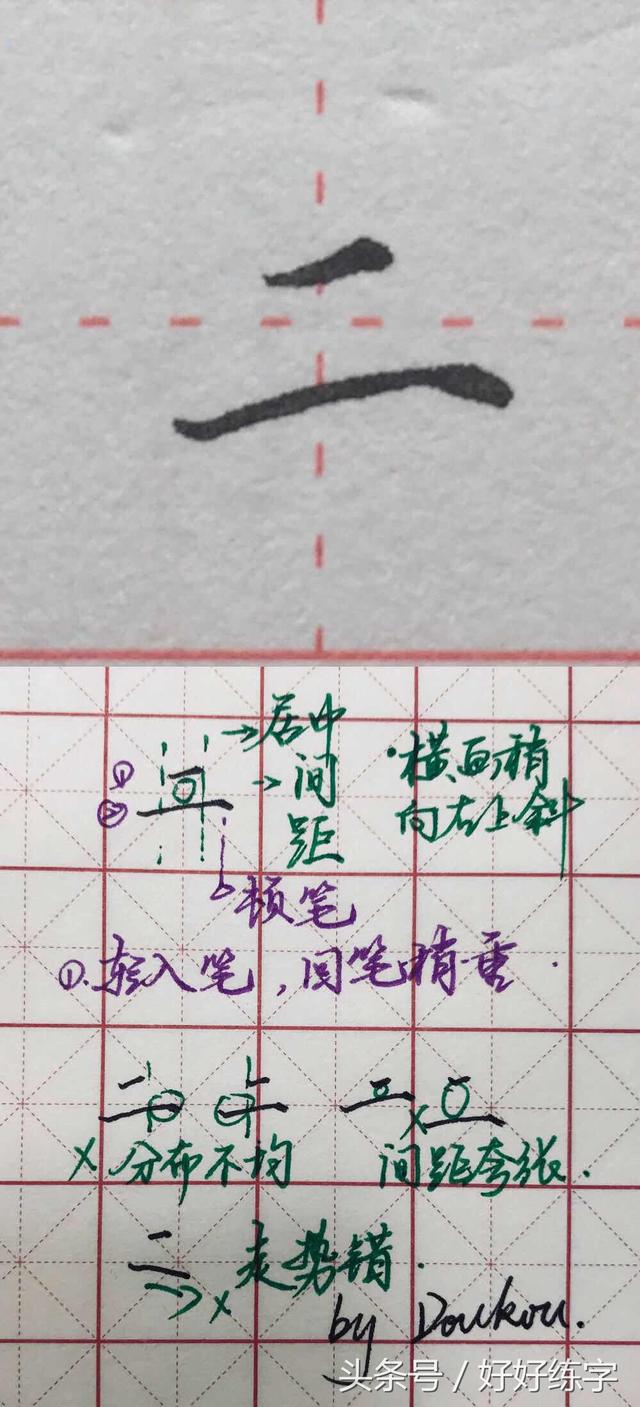 二
→居中
→间
距
·横画稍
向右上斜
①
②
顿笔
①.轻入笔,回笔稍重.
x 分布不均
x 间距夸张.
→x 走势错.
by Doukou.
头条号 / 好好练字